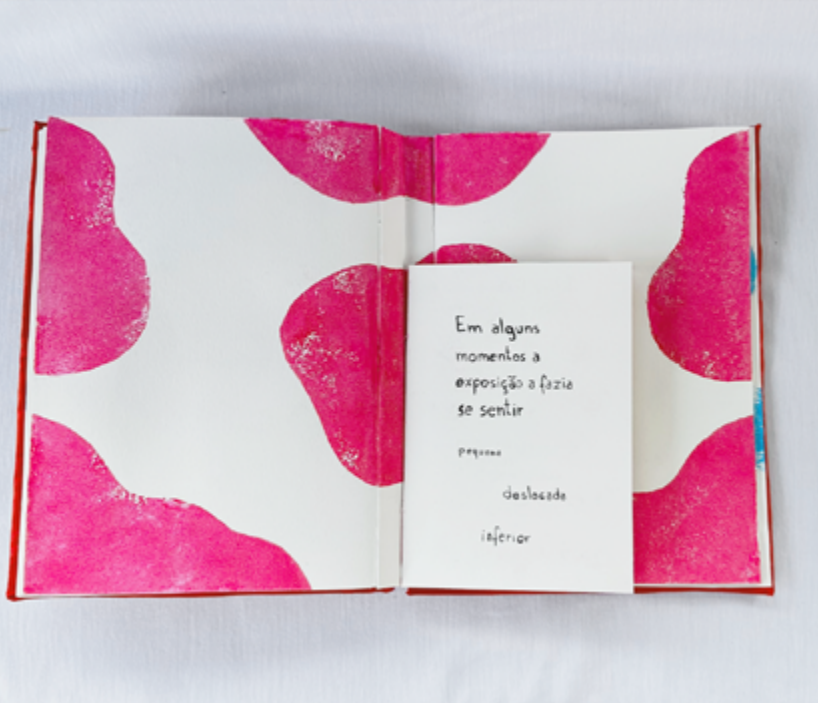 Em alguns
momentos a
exposição a fazia
se sentir
pequena
deslocada
inferior